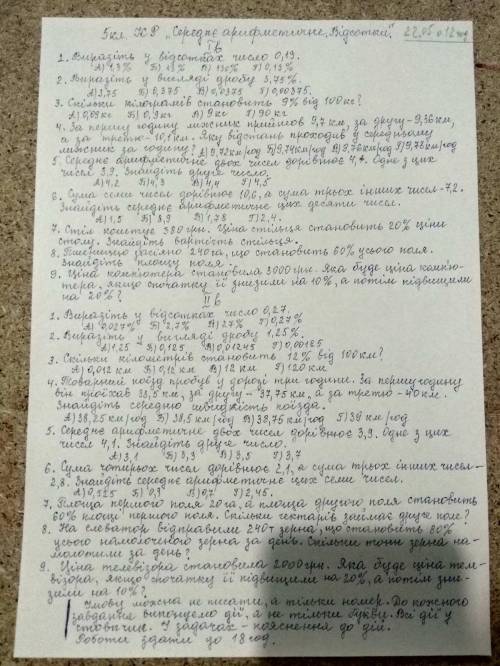 5кл. КР "Середнє арифметичне. Відсотки". 22.05 о 12 год
І в
1. Виразіть у відсотках число 0,13.
А) 1,3% Б) 13% В) 130% Г) 0,13%
2. Виразіть у вигляді дробу 3,75%.
А) 3,75 Б) 0,375 В) 0,0375 Г) 0,00375.
3. Скільки кілограмів становить 9% від 100кг?
А) 0,09кг Б) 0,9кг В) 9кг Г) 90кг
4. За першу годину лижник пройшов 9,7 км, за другу – 9,36км,
а за третю – 10,1 км. Яку відстань проходив у середньому
лижник за годину? А) 9,72км/год Б) 9,74км/год В) 9,76км/год Г) 9,78км/год
5. Середнє арифметичне двох чисел дорівнює 4,1. Одне з цих
чисел 3,9. Знайдіть друге число.
А) 4,2 Б) 4,3 В) 4,4 Г) 4,5
6. Сума семи чисел дорівнює 10,6, а сума трьох інших чисел – 7,2.
Знайдіть середнє арифметичне цих десяти чисел.
А) 1,5 Б) 8,9 В) 1,78 Г) 2,4.
7. Стіл коштує 380 грн. Ціна стільця становить 20% ціни
столу. Знайдіть вартість стільця.
8. Пшеницею засіяно 240 га, що становить 60% усього поля.
Знайдіть площу поля.
9. Ціна комп'ютера становила 3000 грн. Яка буде ціна комп'ю-
тера, якщо спочатку її знизили на 10%, а потім підвищили
на 20%?
ІІ в
1. Виразіть у відсотках число 0,27.
А) 0,027% Б) 2,7% В) 27% Г) 0,27%
2. Виразіть у вигляді дробу 1,25%.
А) 1,25 Б) 0,125 В) 0,0125 Г) 0,00125
3. Скільки кілометрів становить 12% від 100км?
А) 0,012 км Б) 0,12 км В) 12 км Г) 120 км
4. Товарний поїзд пробув у дорозі три години. За першу годину
він проїхав 38,5 км, за другу – 37,75 км, а за третю – 40 км.
Знайдіть середню швидкість поїзда.
А) 38,25 км/год Б) 38,5 км/год В) 38,75 км/год Г) 39 км/год
5. Середнє арифметичне двох чисел дорівнює 3,9. Одне з цих
чисел 4,1. Знайдіть друге число.
А) 3,1 Б) 3,3 В) 3,5 Г) 3,7
6. Сума чотирьох чисел дорівнює 2,1, а сума трьох інших чисел –
2,8. Знайдіть середнє арифметичне цих семи чисел.
А) 0,525 Б) 0,9 В) 0,7 Г) 2,45.
7. Площа першого поля 20 га, а площа другого поля становить
60% площі першого поля. Скільки гектарів займає друге поле?
8. На елеватор відправили 240т зерна, що становить 80%
усього намолоченого зерна за день. Скільки тонн зерна на-
молотили за день?
9. Ціна телевізора становила 2000 грн. Яка буде ціна теле-
візора, якщо спочатку її підвищили на 20%, а потім зни-
зили на 10%?
Умову можна не писати, а тільки номер. До кожного
завдання виписуємо дії, а не тільки букву. Всі дії у
стовпчик. У задачах – пояснення до дій.
Роботи здати до 18 год.